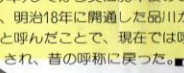 、明治18年に開通した品川か
と呼んだことで、現在では呼
され、昔の呼称に戻った。■